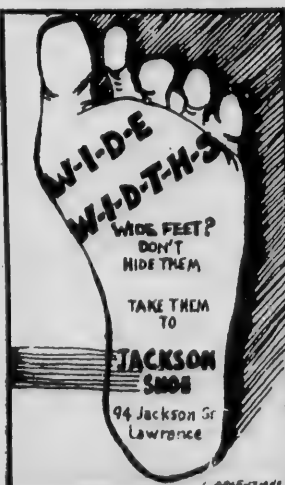 W-I-D-E
W-I-D-T-H-S
WIDE FEET?
DON'T
HIDE THEM
TAKE THEM
TO
JACKSON
SHOE
94 Jackson St
Lawrence